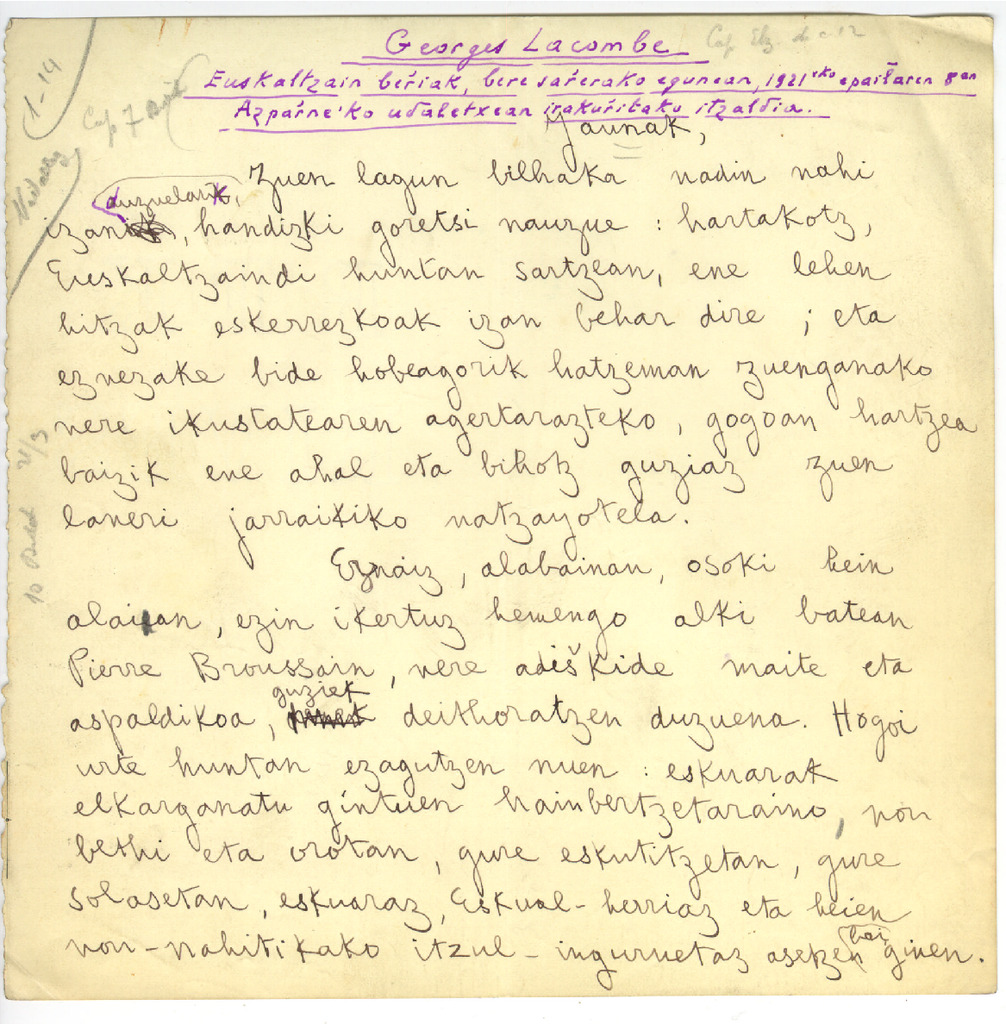 Georges Lacombe
Euskaltzain beŕiak, bere saŕerako egunean, 1921eko epailaren 8an
Azpaŕne'ko udaletxean irakuŕitako itzaldia.
1-14
Jaunak,
Zuen lagun bilhaka nadin nahi
duzuelarik,
izan, handizki goretsi nauzue : hartakotz,
Euskaltzaindi huntan sartzean, ene lehen
hitzak eskerrezkoak izan behar dire ; eta
eznezake bide hobeagorik hatzeman zuenganako
nere ikustatearen agertarazteko, gogoan hartzea
baizik ene ahal eta bihotz guziaz zuen
laneri jarraikiko natzayotela.
Eznaiz, alabainan, osoki hein
alaiean, ezin ikertuz hemengo alki batean
Pierre Broussain, nere adiškide maite eta
guziek
aspaldikoa, deithoratzen duzuena. Hogoi
urte huntan ezagutzen nuen : eskuarak
elkarganatu gintuen hainbertzetaraino, non
bethi eta orotan, gure eskutitzetan, gure
solasetan, eskuaraz, Eskual-herriaz eta heien
non-nahitikako itzul-ingurunetaz asetzen bai ginen.